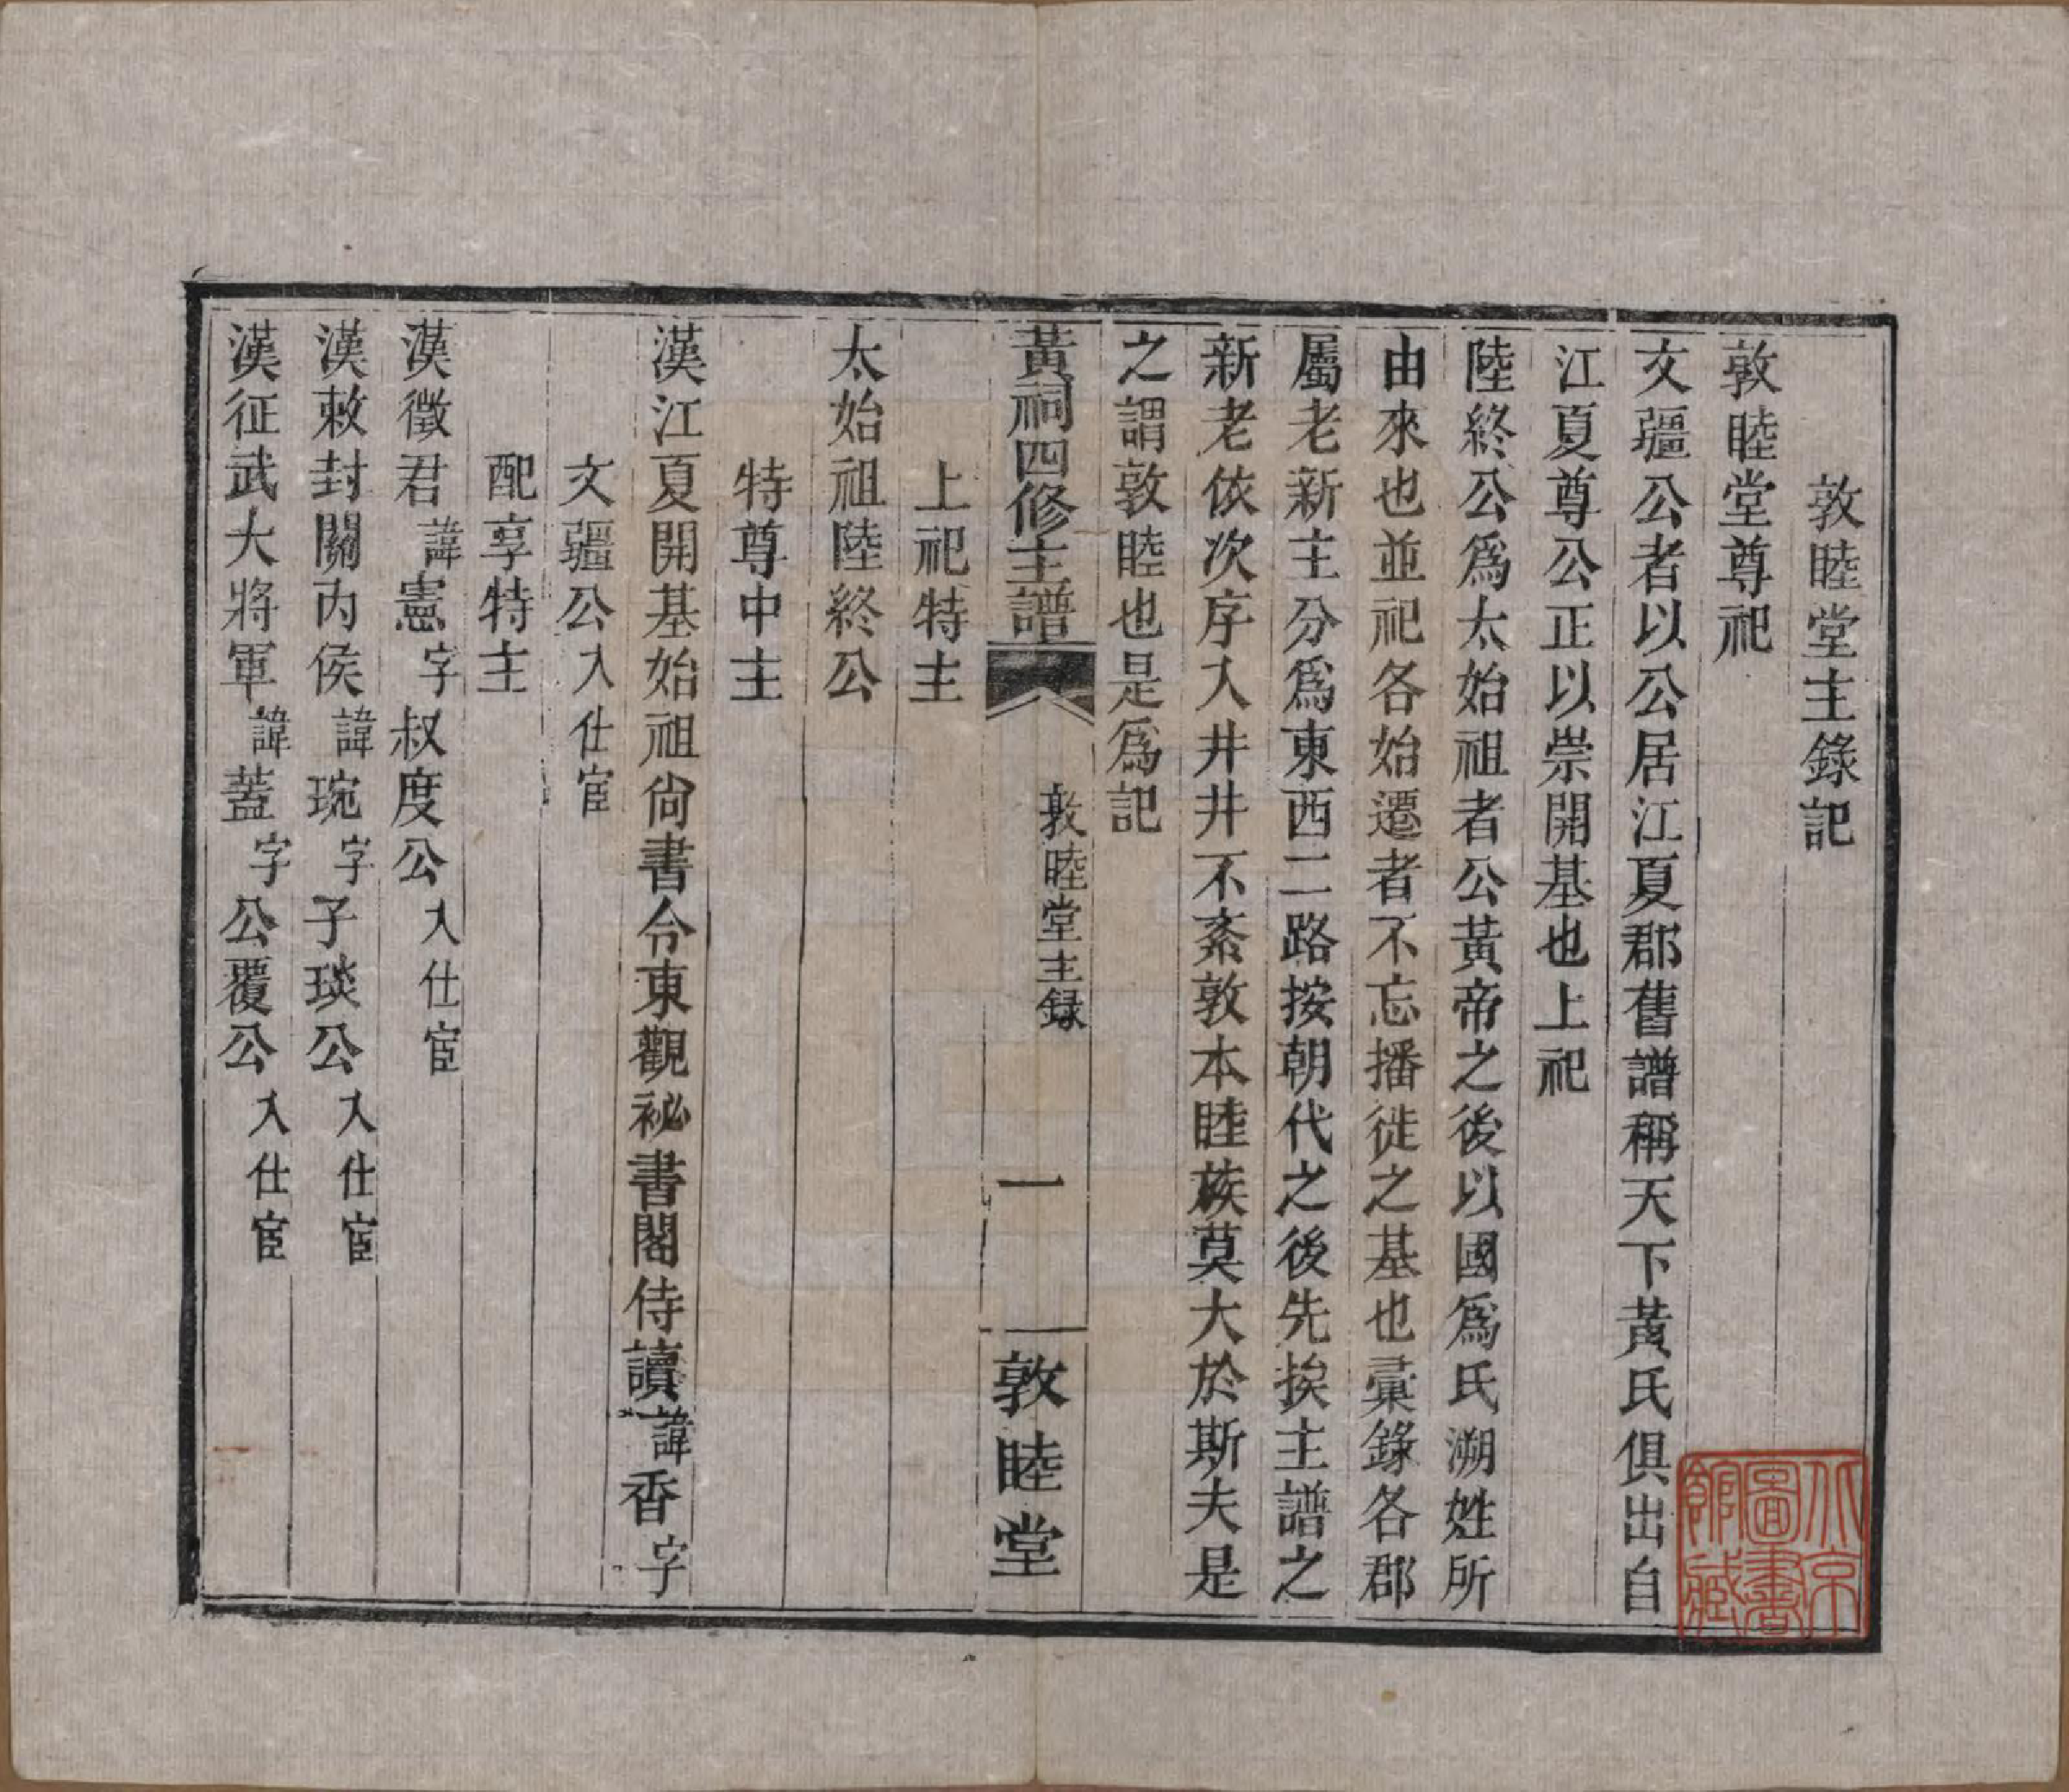 敦睦堂主錄記
敦睦堂尊祀
文疆公者以公居江夏郡舊譜稱天下黃氏俱出自
江夏尊公正以崇開基也上祀
陸終公爲太始祖者公黃帝之後以國爲氏溯姓所
由來也並祀各始遷者不忘播徙之基也彙錄各郡
屬老新主分爲東西二路按朝代之後先挨主譜之
新老依次序入井井不紊敦本睦族莫大於斯夫是
之謂敦睦也是爲記
黃祠四修主譜 敦睦堂主録 一 敦睦堂
上祀特主
太始祖陸終公
特尊中主
漢江夏開基始祖尙書令東觀祕書閣侍讀諱香字
文疆公入仕宦
配享特主
漢徵君諱憲字叔度公入仕宦
漢敕封關内侯諱琬字子琰公入仕宦
漢征武大將軍諱蓋字公覆公入仕宦
北京圖書館藏